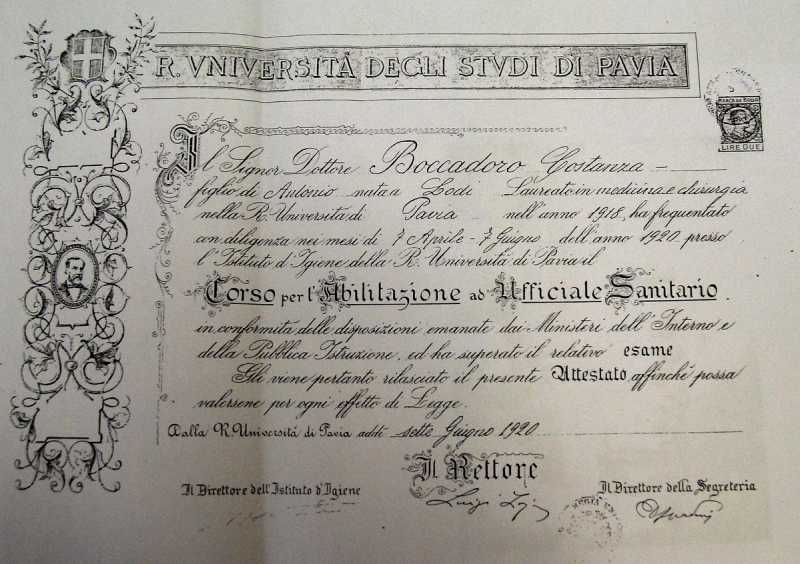 R. VNIVERSITÀ DEGLI STVDI DI PAVIA
MARCA DA BOLLO
LIRE DUE
Il Signor Dottore Boccadoro Costanza
figlio di Antonio nata a Lodi Laureato in medicina e chirurgia
nella R. Università di Pavia nell'anno 1918, ha frequentato
con diligenza nei mesi di 7 Aprile - 7 Giugno dell'anno 1920 presso
l'Istituto d'Igiene della R. Università di Pavia il
Corso per l'Abilitazione ad Ufficiale Sanitario.
in conformità delle disposizioni emanate dai Ministeri dell'Interno e
della Pubblica Istruzione, ed ha superato il relativo esame
Gli viene pertanto rilasciato il presente Attestato affinchè possa
valersene per ogni effetto di Legge.
Dalla R. Università di Pavia addì sette Giugno 1920
Il Rettore
Il Direttore dell'Istituto d'Igiene
Il Direttore della Segreteria
Luigi